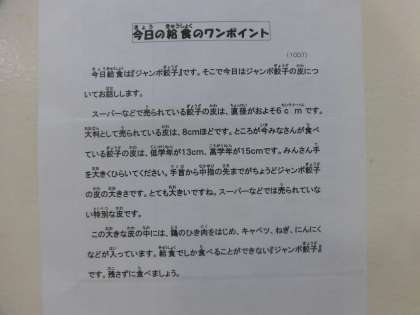 今日の給食のワンポイント
(1007)
今日給食は『ジャンボ餃子』です。そこで今日はジャンボ餃子の皮につ
いてお話しします。
スーパーなどで売られている餃子の皮は、直径がおよそ6cmです。
大判として売られている皮は、8cmほどです。ところが今みなさんが食べ
ている餃子の皮は、低学年が13cm、高学年が15cmです。みんさん手
を大きくひらいてください。手首から中指の先までがちょうどジャンボ餃子
の皮の大きさです。とても大きいですね。スーパーなどでは売られていな
い特別な皮です。
この大きな皮の中には、鶏のひき肉をはじめ、キャベツ、ねぎ、にんにく
などが入っています。給食でしか食べることができない『ジャンボ餃子』
です。残さずに食べましょう。